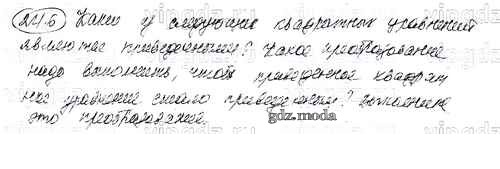 24.6 Какие из следующих квадратных уравнений
являются приведенными? Какое преобразование
надо выполнить, чтобы приведенное квадрат
ное уравнение стало приведенным? выполните
это преобразование.
gdz.moda